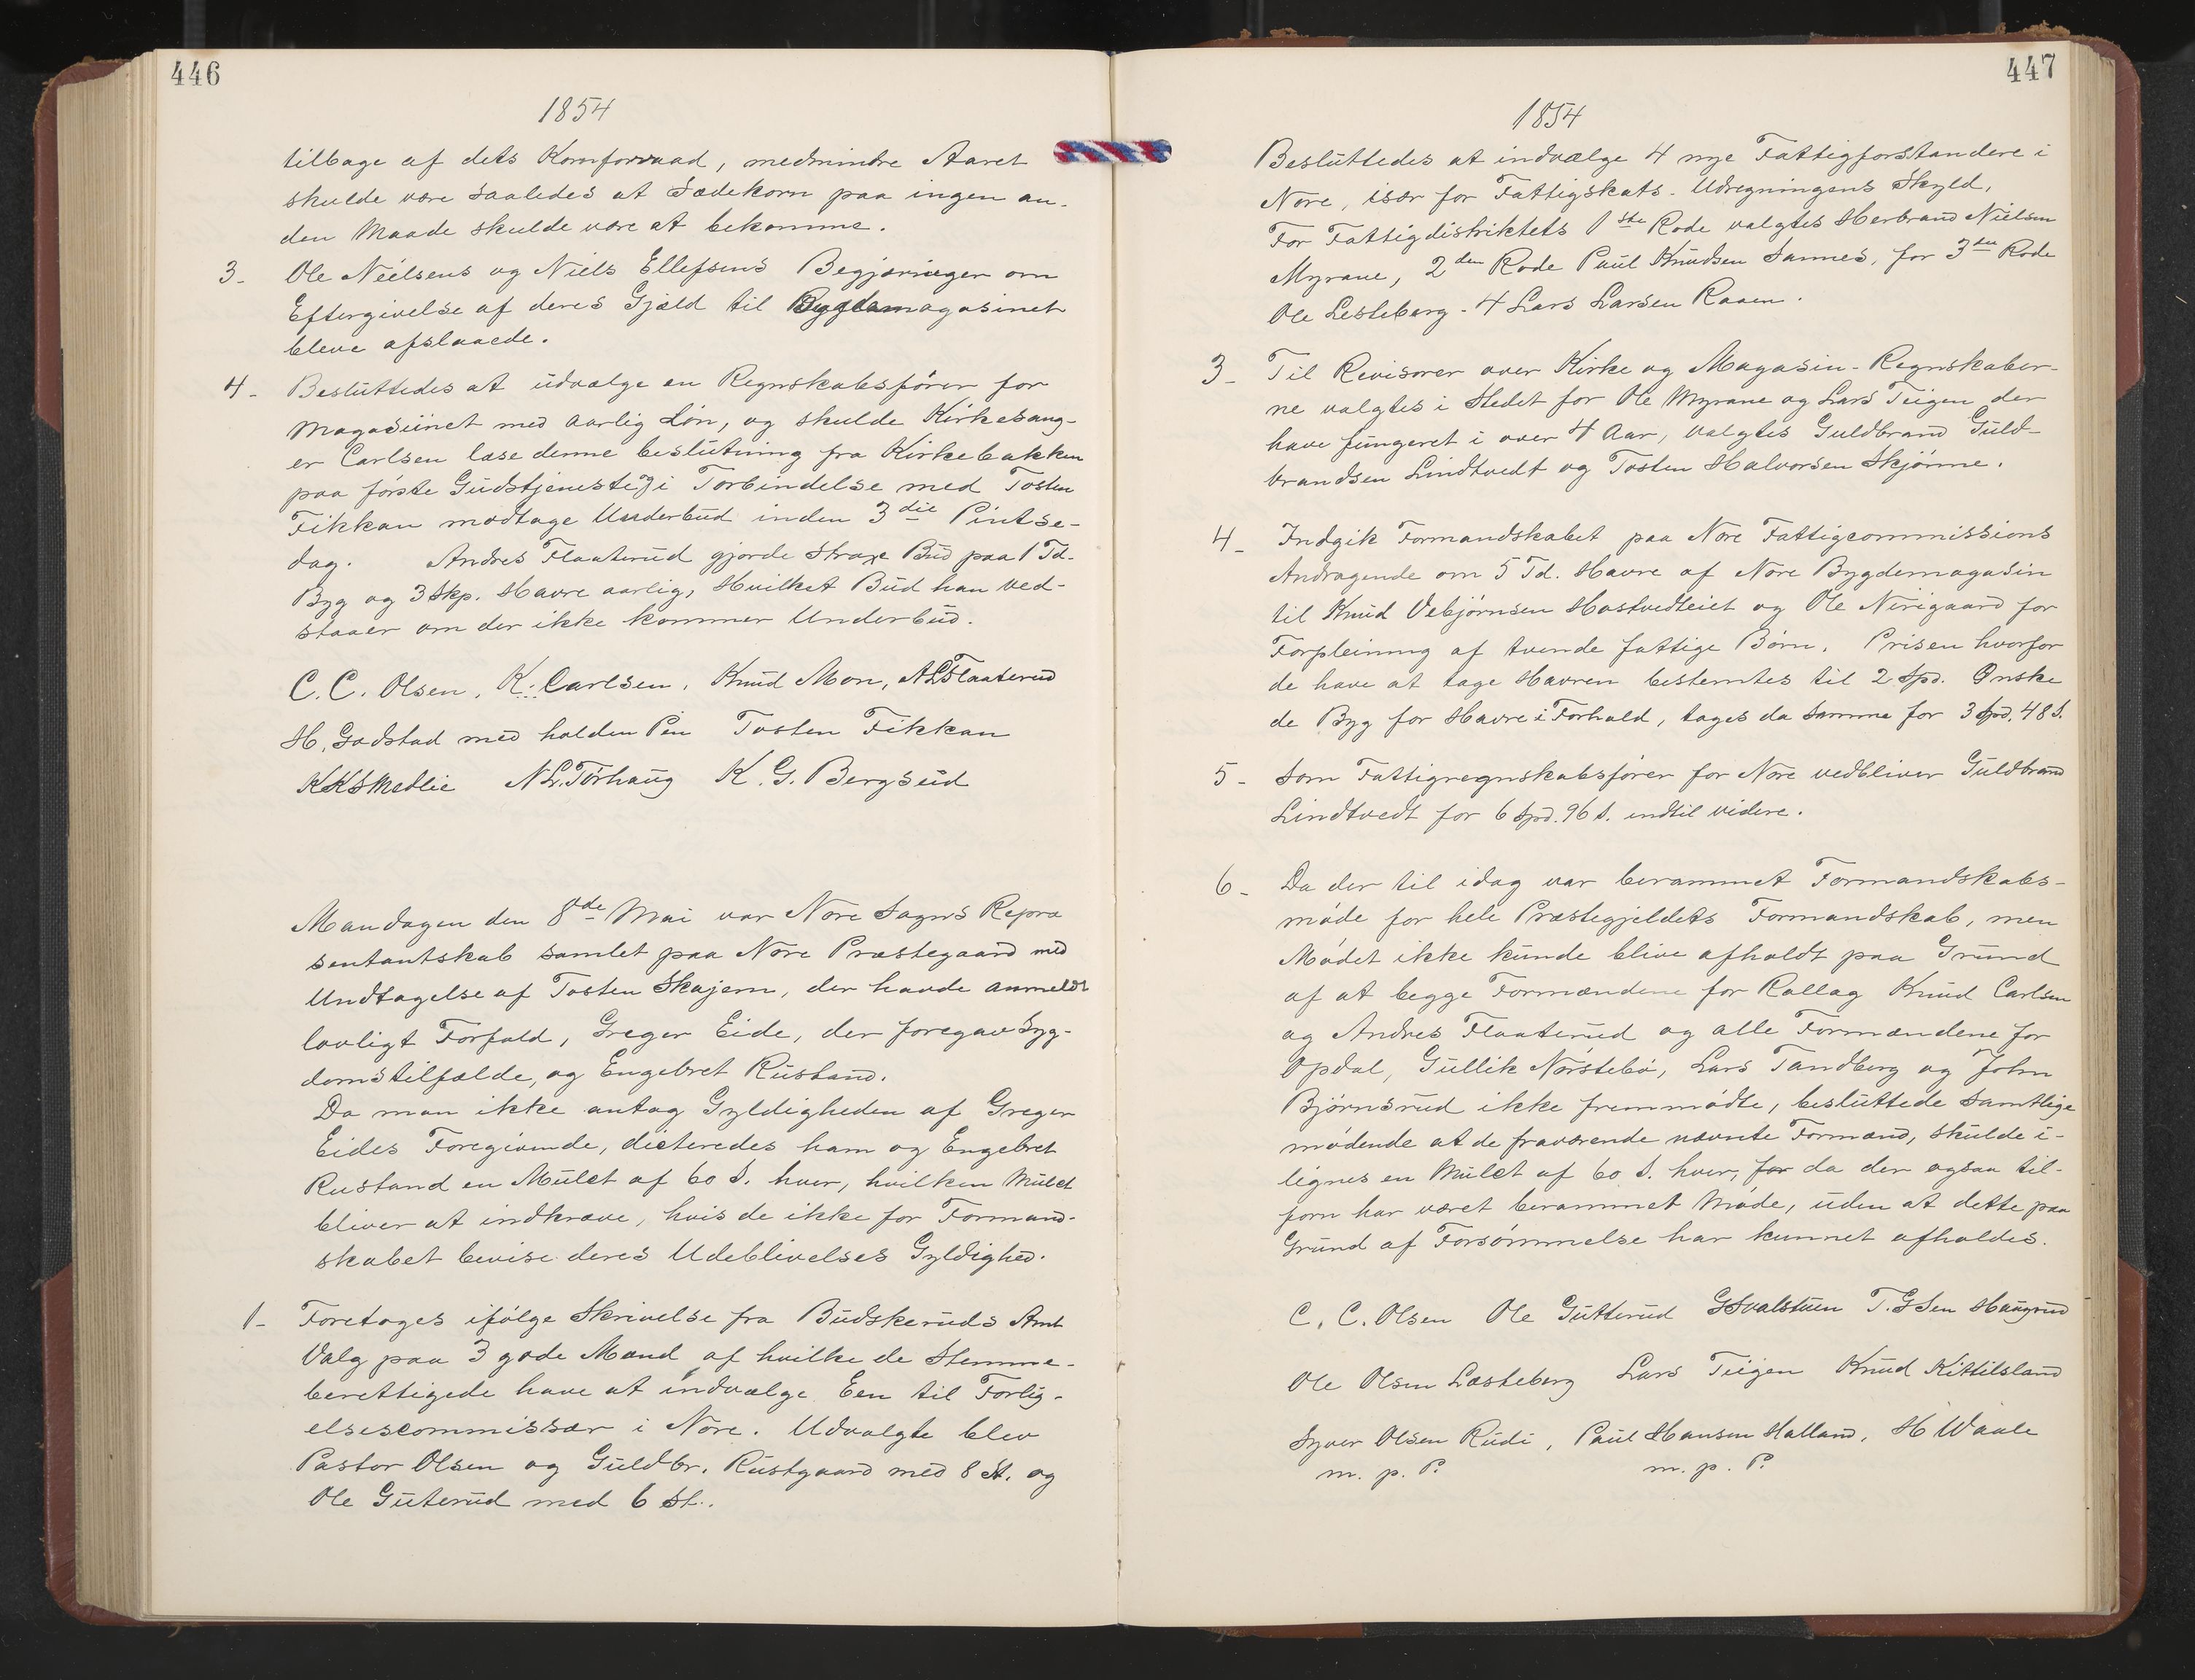 446
1854
tilbage af dets Kornforraad, medmindre Aaret
skulde være saaledes at Sædekorn paa ingen an-
den Maade skulde være at bekomme.
3- Ole Nielsens og Niels Ellefsens Begjæringer om
Eftergivelse af deres Gjæld til Bygdemagasinet
bleve afslaaede.
4- Besluttedes at udvælge en Regnskabsfører for
Magasiinet med aarlig Løn, og skulde Kirkesang-
er Carlsen læse denne beslutning fra Kirkebakken
paa første Gudstjeneste i Forbindelse med Tosten
Fikkan modtage Underbud inden 3die Pintse-
dag. Andres Flaaterud gjorde strax Bud paa 1 Td.
Byg og 3 Skp. Havre aarlig, Hvilket Bud han ved-
staaer om der ikke kommer Underbud.
C. C. Olsen, K. Carlsen, Knud Mon, A L Flaaterud
H. Gadstad med holden Pen Tosten Fikkan
KKSmedlie N L. Torhaug K. G. Bergsud
Mandagen den 8de Mai var Nore Sogns Repræ
sentantskab samlet paa Nore Præstegaard med
Undtagelse af Tosten Skajem, der havde anmeldt
lovligt Forfald, Greger Eide, der foregav Syg-
domstilfælde, og Engebret Rustand.
Da man ikke antog Gyldigheden af Greger
Eides Foregivende, dicteredes ham og Engebret
Rustand en Mulct af 60 s. hver, hvilken Mulct
bliver at indkræve, hvis de ikke for Formand-
skabet bevise deres Udeblivelses Gyldighed.
1- Foretoges ifølge Skrivelse fra Budskeruds Amt
Valg paa 3 gode Mænd af hvilke de Stemme-
berettigede have at indvælge Een til Forlig-
elsescommissær i Nore. Udvalgte blev
Pastor Olsen og Guldbr. Rustgaard med 8 St. og
Ole Guterud med 6 St.
447
1854
Besluttedes at indvælge 4 nye Fattigforstandere i
Nore, især for Fattigskats-Udregningens Skyld,
For Fattigdistriktets 1ste Rode valgtes Herbrand Nielsen
Myrane, 2den Rode Paul Knudsen Sannes, for 3die Rode
Ole Lesteberg - 4 Lars Larsen Raaen.
3- Til Revisorer over Kirke og Magasin-Regnskaber-
ne valgtes i Stedet for Ole Myrane og Lars Teigen der
have fungeret i over 4 Aar, valgtes Guldbrand Guld-
brandsen Lindtvedt og Tosten Halvorsen Skjønne.
4- Indgik Formandskabet paa Nore Fattigcommissions
Andragende om 5 Td. Havre af Nore Bygdemagasin
til Knud Vebjørnsen Hostvedteiet og Ole Nirigaard for
Forpleining af tvende fattige Børn. Prisen hvorfor
de have at tage Havren bestemtes til 2 Spd. Ønske
de Byg for Havre i Forhold, tages da samme for 3 Spd. 48 s.
5- Som Fattigregnskabsfører for Nore vedbliver Guldbrand
Lindtvedt for 6 Spd. 96 s. indtil videre.
6- Da der til idag var berammet Formandskabs-
møde for hele Præstegjeldets Formandskab, men
Mødet ikke kunde blive afholdt paa Grund
af at begge Formændene for Rollag Knud Carlsen
og Andres Flaaterud og alle Formændene for
Opdal, Gullik Nørstebø, Lars Tandberg og John
Bjørnsrud ikke fremmødte, besluttede samtlige
mødende at de fraværende nævnte Formænd, skulde i-
lignes en Mulct af 60 s. hver, for da der ogsaa til-
forn har været berammet Møde, uden at dette paa
Grund af Forsømmelse har kunnet afholdes.
C. C. Olsen Ole Gutterud GSvalstuen T. GSen Haugrud
Ole Olsen Læsteberg Lars Teigen Knud Kittilsland
Syver Olsen Rudi, Paul Hansen Halland, H Waale
m. p. P. m. p. P.